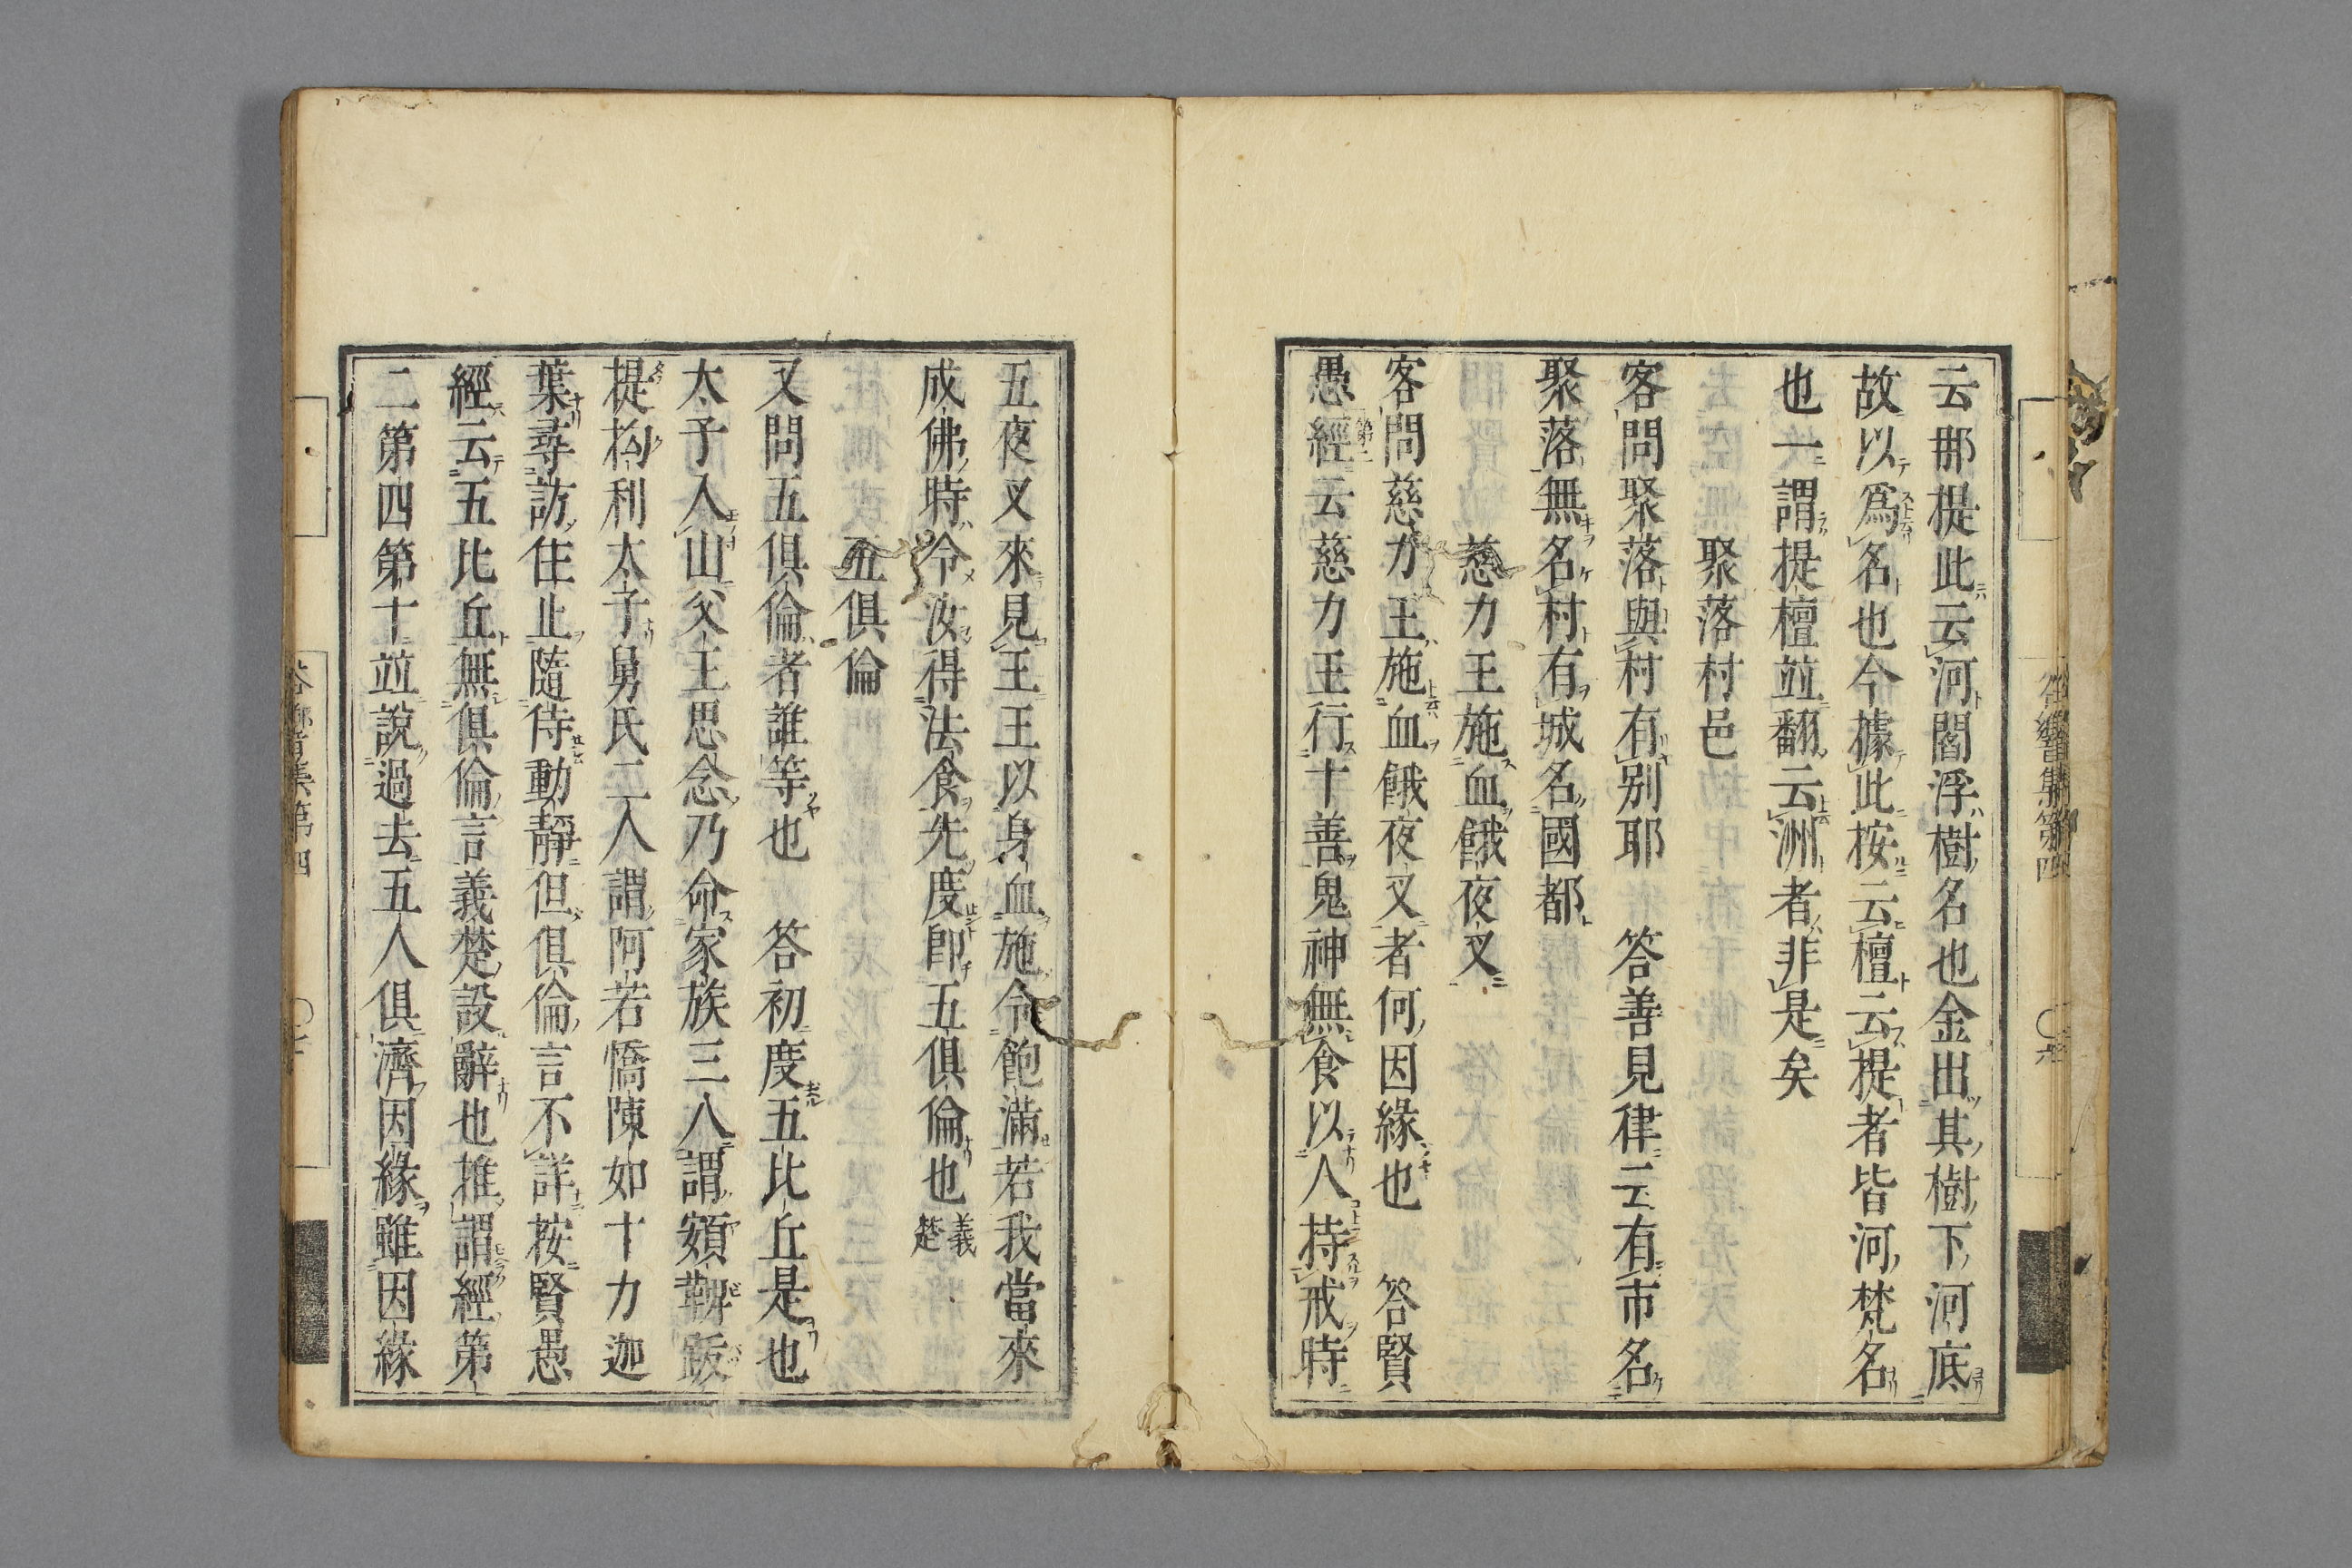 云那提此云河閻浮樹名也金出其樹下河底
故以爲名也今據此按云檀云提者皆河梵名
也一謂提檀竝翻云洲者非是矣
聚落村邑
客問聚落與村有別耶　答善見律云有市名
聚落無名村有城名國都
慈力王施血餓夜叉
客問慈力王施血餓夜叉者何因緣也　答賢
愚經第二云慈力王行十善鬼神無食以人持戒時
五夜叉來見王王以身血施令飽滿若我當來
成佛時令汝得法食先度卽五俱倫也義楚
五俱倫
又問五俱倫者誰等也　答初度五比丘是也
太子入山父王思念乃命家族三人謂頞鞞跋
提拘利太子舅氏二人謂阿若憍陳如十力迦
葉尋訪住止隨侍動靜但俱倫言不詳按賢愚
經云五比丘無俱倫言義楚設辭也推謂經第
二第四第十竝說過去五人俱濟因緣雖因緣
答響集第四
〇六
集第四
〇七